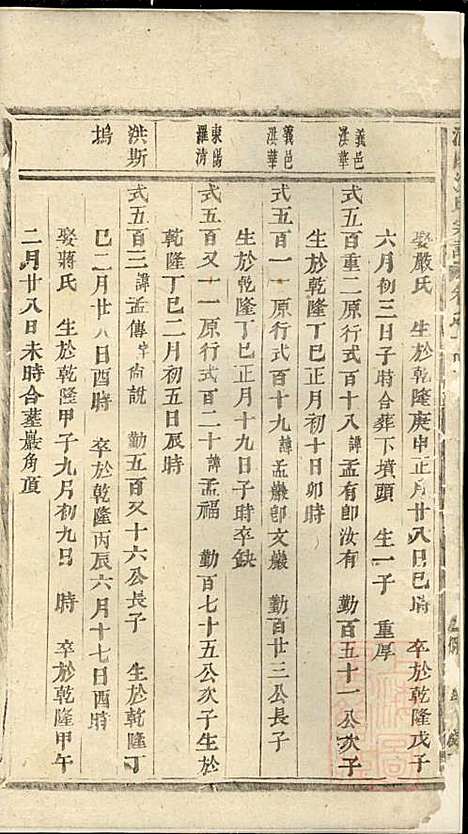 娶嚴氏　生於乾隆庚申正月廿八日巳時　卒於乾隆戊子
六月初三日子時合葬下墳頭　生一子　重厚
義邑溪華
式五百重二原行式百十八諱孟有卽汝有　勤百五十一公次子
生於乾隆丁巳正月初十日卯時
義邑溪華
式五百一　原行式百十九諱孟巖卽文巖　勤百廿三公長子
生於乾隆丁巳正月十九日子時卒缺
東陽羅清
式五百又一　原行式百二十諱孟福　勤百七十五公次子生於
乾隆丁巳二月初五日辰時
洪斯塢
式五百三　諱孟傳字尚說　勤五百又十六公長子　生於乾隆丁
巳二月廿八日酉時　卒於乾隆丙辰六月十七日酉時
娶蔣氏　生於乾隆甲子九月初九日　時　卒於乾隆甲午
二月廿八日未時合墓巖角頂